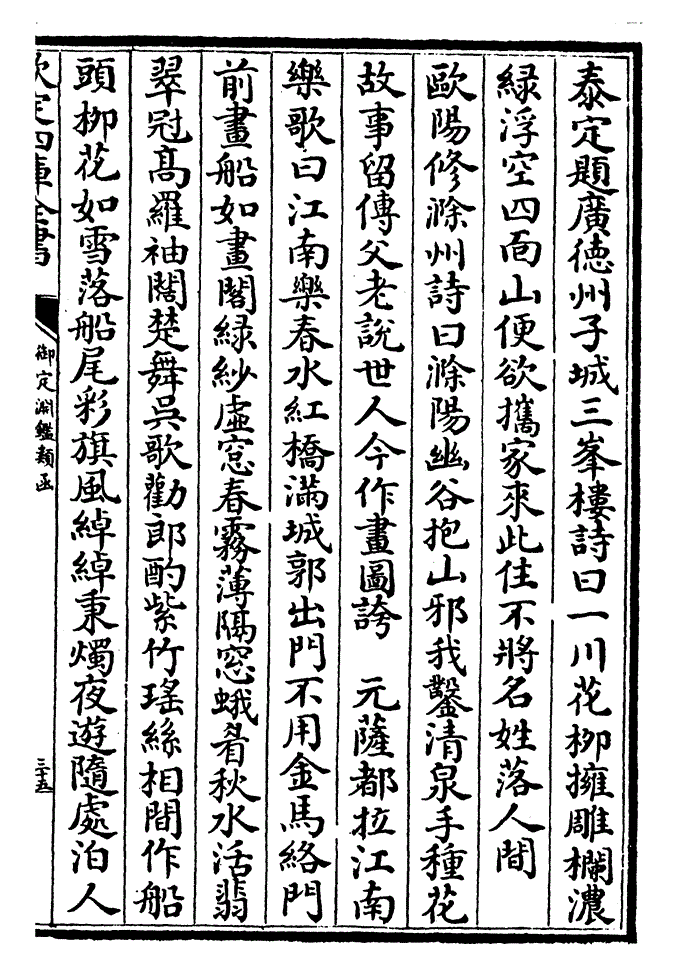 泰定題廣徳州子城三峯樓詩曰一川花栁擁雕欄濃
緑浮空四面山便欲攜家來此住不將名姓落人間
歐陽修滁州詩曰滁陽幽谷抱山邪我鑿清泉手種花
故事留傳父老說世人今作畫圖誇　元薩都拉江南
樂歌曰江南樂春水紅橋滿城郭出門不用金馬絡門
前畫船如畫閣緑紗虛窓春霧薄隔窓蛾眉秋水活翡
翠冠髙羅袖闊楚舞吳歌勸郎酌紫竹瑤絲相間作船
頭栁花如雪落船尾彩旗風綽綽秉燭夜遊隨處泊人
欽定四庫全書
御定淵鑑類函
三十五